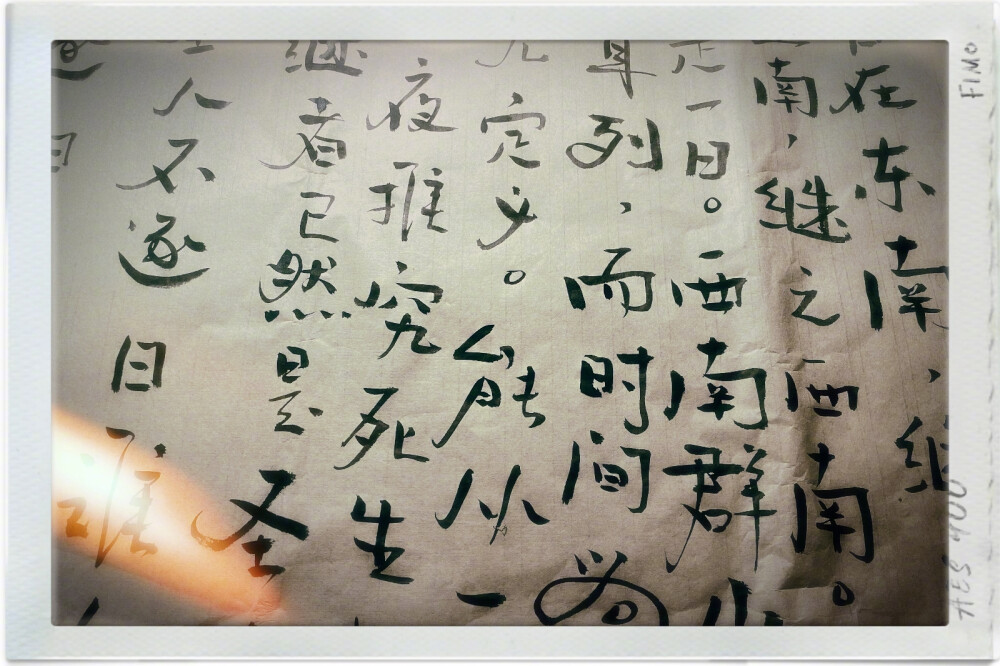 在东南，继
南，继之西南。
一日。西南群
列，而时间为
定义。能从一
夜推究死生
继者已然是圣
人不逐日谁
逐日
FIMO
AES 400